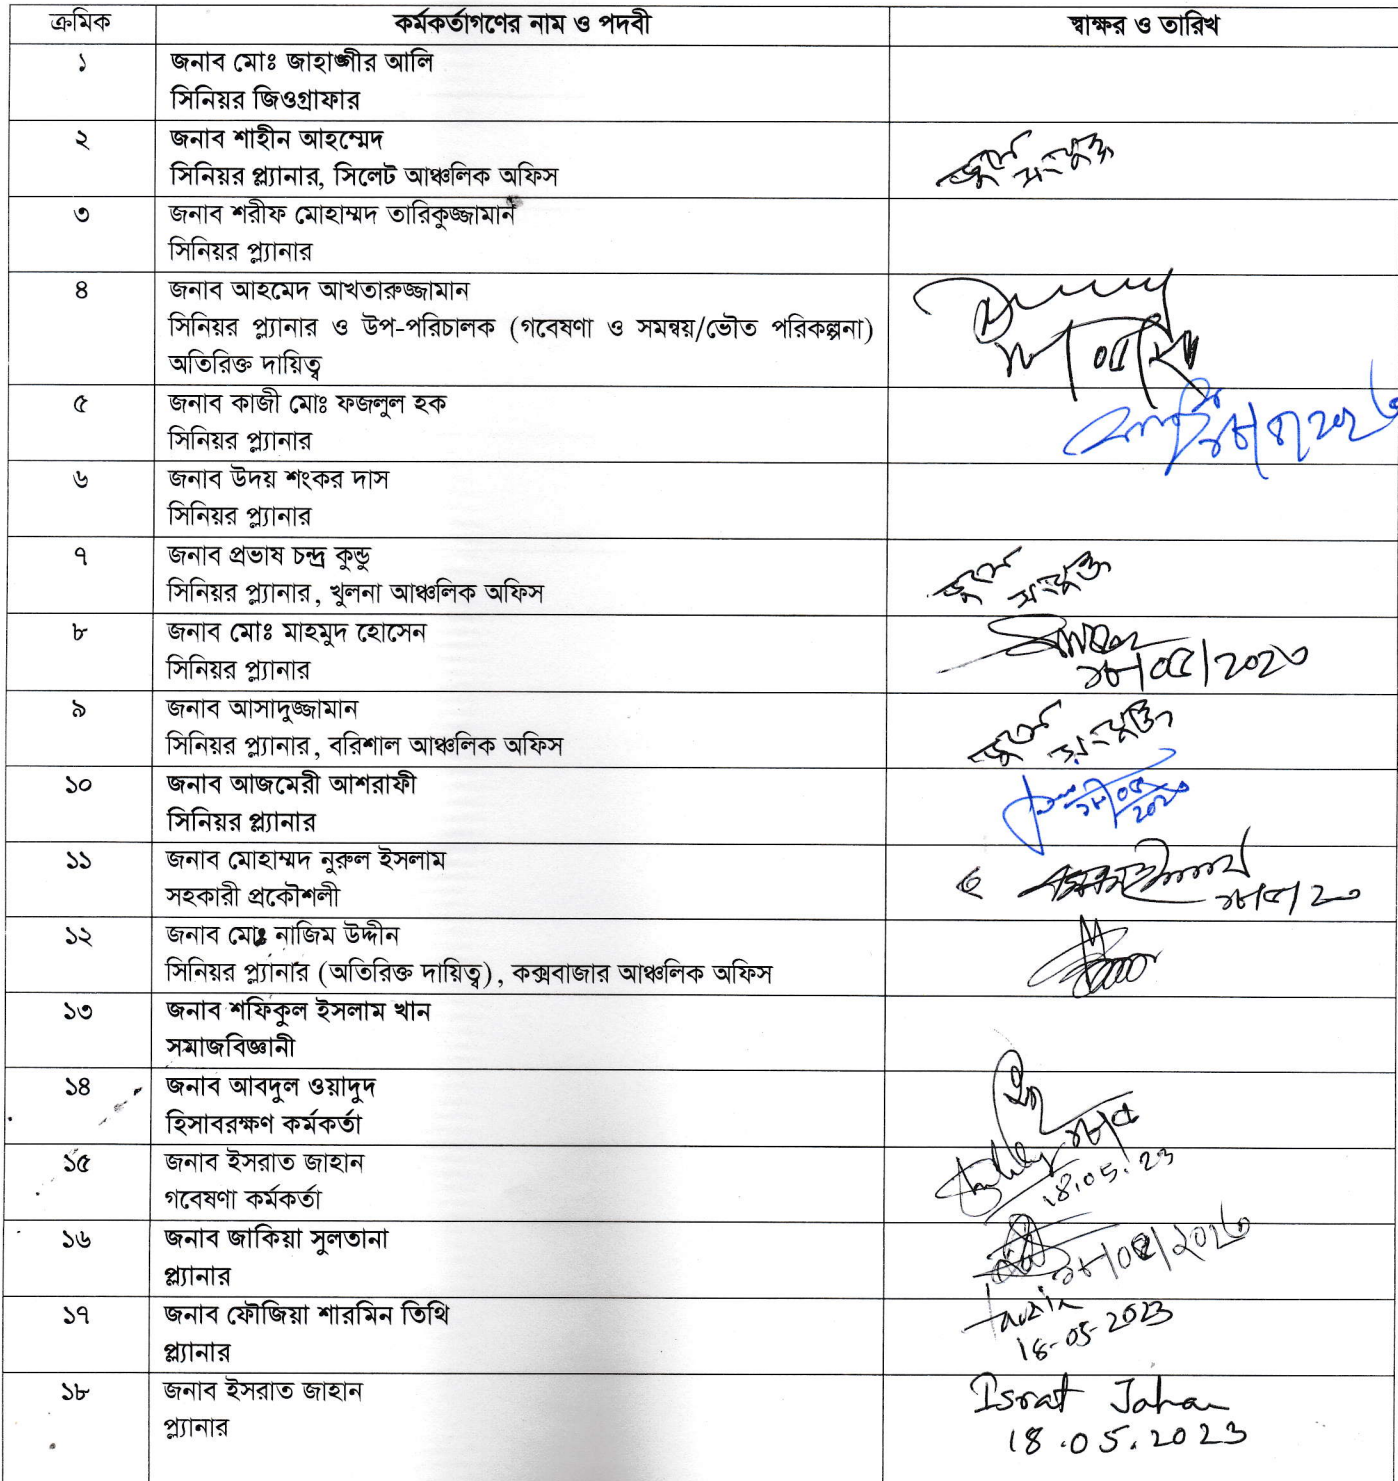 ক্রমিক কর্মকর্তাগণের নাম ও পদবী স্বাক্ষর ও তারিখ
১ জনাব মোঃ জাহাঙ্গীর আলি
সিনিয়র জিওগ্রাফার
২ জনাব শাহীন আহম্মেদ
সিনিয়র প্ল্যানার, সিলেট আঞ্চলিক অফিস
৩ জনাব শরীফ মোহাম্মদ তারিকুজ্জামান
সিনিয়র প্ল্যানার
৪ জনাব আহমেদ আখতারুজ্জামান
সিনিয়র প্ল্যানার ও উপ-পরিচালক (গবেষণা ও সমন্বয়/ভৌত পরিকল্পনা)
অতিরিক্ত দায়িত্ব
৫ জনাব কাজী মোঃ ফজলুল হক
সিনিয়র প্ল্যানার
৬ জনাব উদয় শংকর দাস
সিনিয়র প্ল্যানার
৭ জনাব প্রভাষ চন্দ্র কুন্ডু
সিনিয়র প্ল্যানার, খুলনা আঞ্চলিক অফিস
৮ জনাব মোঃ মাহমুদ হোসেন
সিনিয়র প্ল্যানার ১৮/০৫/২০২৩
৯ জনাব আসাদুজ্জামান
সিনিয়র প্ল্যানার, বরিশাল আঞ্চলিক অফিস
১০ জনাব আজমেরী আশরাফী
সিনিয়র প্ল্যানার
১১ জনাব মোহাম্মদ নুরুল ইসলাম
সহকারী প্রকৌশলী
১২ জনাব মোঃ নাজিম উদ্দীন
সিনিয়র প্ল্যানার (অতিরিক্ত দায়িত্ব), কক্সবাজার আঞ্চলিক অফিস
১৩ জনাব শফিকুল ইসলাম খান
সমাজবিজ্ঞানী
১৪ জনাব আবদুল ওয়াদুদ
হিসাবরক্ষণ কর্মকর্তা
১৫ জনাব ইসরাত জাহান
গবেষণা কর্মকর্তা 18.05.23
১৬ জনাব জাকিয়া সুলতানা
প্ল্যানার ১৮/০৫/২০২৩
১৭ জনাব ফৌজিয়া শারমিন তিথি
প্ল্যানার 18-05-2023
১৮ জনাব ইসরাত জাহান Israt Jahan
প্ল্যানার 18.05.2023